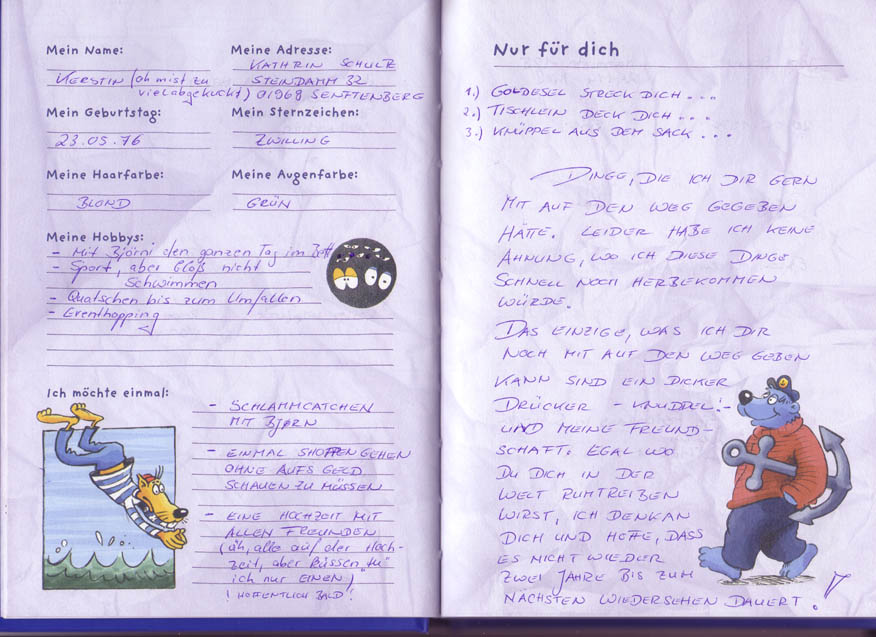 Mein Name:
Kerstin (oh mist zu
viel abgekuckt)
Meine Adresse:
KATHRIN SCHULZ
STEINDAMM 32
01968 SENFTENBERG
Mein Geburtstag:
23.05.76
Mein Sternzeichen:
ZWILLING
Meine Haarfarbe:
BLOND
Meine Augenfarbe:
GRÜN
Meine Hobbys:
- Mit Björni den ganzen Tag im Bett
- Sport, aber bloß nicht
Schwimmen
- Quatschen bis zum Umfallen
- Eventhopping
Ich möchte einmal:
- SCHLAMMCATCHEN
MIT BJØRN
- EINMAL SHOPPEN GEHEN
OHNE AUFS GELD
SCHAUEN ZU MÜSSEN
- EINE HOCHZEIT MIT
ALLEN FREUNDEN
(äh, alle auf der Hoch-
zeit, aber Küssen "tu"
ich nur EINEN)
! HOFFENTLICH BALD!
Nur für dich
1.) GOLDESEL STRECK DICH...
2.) TISCHLEIN DECK DICH...
3.) KNÜPPEL AUS DEM SACK...
DINGE, DIE ICH DIR GERN
MIT AUF DEN WEG GEGEBEN
HÄTTE. LEIDER HABE ICH KEINE
AHNUNG, WO ICH DIESE DINGE
SCHNELL NOCH HERBEKOMMEN
WÜRDE.
DAS EINZIGE, WAS ICH DIR
NOCH MIT AUF DEN WEG GEBEN
KANN SIND EIN DICKER
DRÜCKER - KNUDDEL! -
UND MEINE FREUND-
SCHAFT. EGAL WO
DU DICH IN DER
WELT RUMTREIBEN
WIRST, ICH DENK AN
DICH UND HOFFE, DASS
ES NICHT WIEDER
ZWEI JAHRE BIS ZUM
NÄCHSTEN WIEDERSEHEN DAUERT!